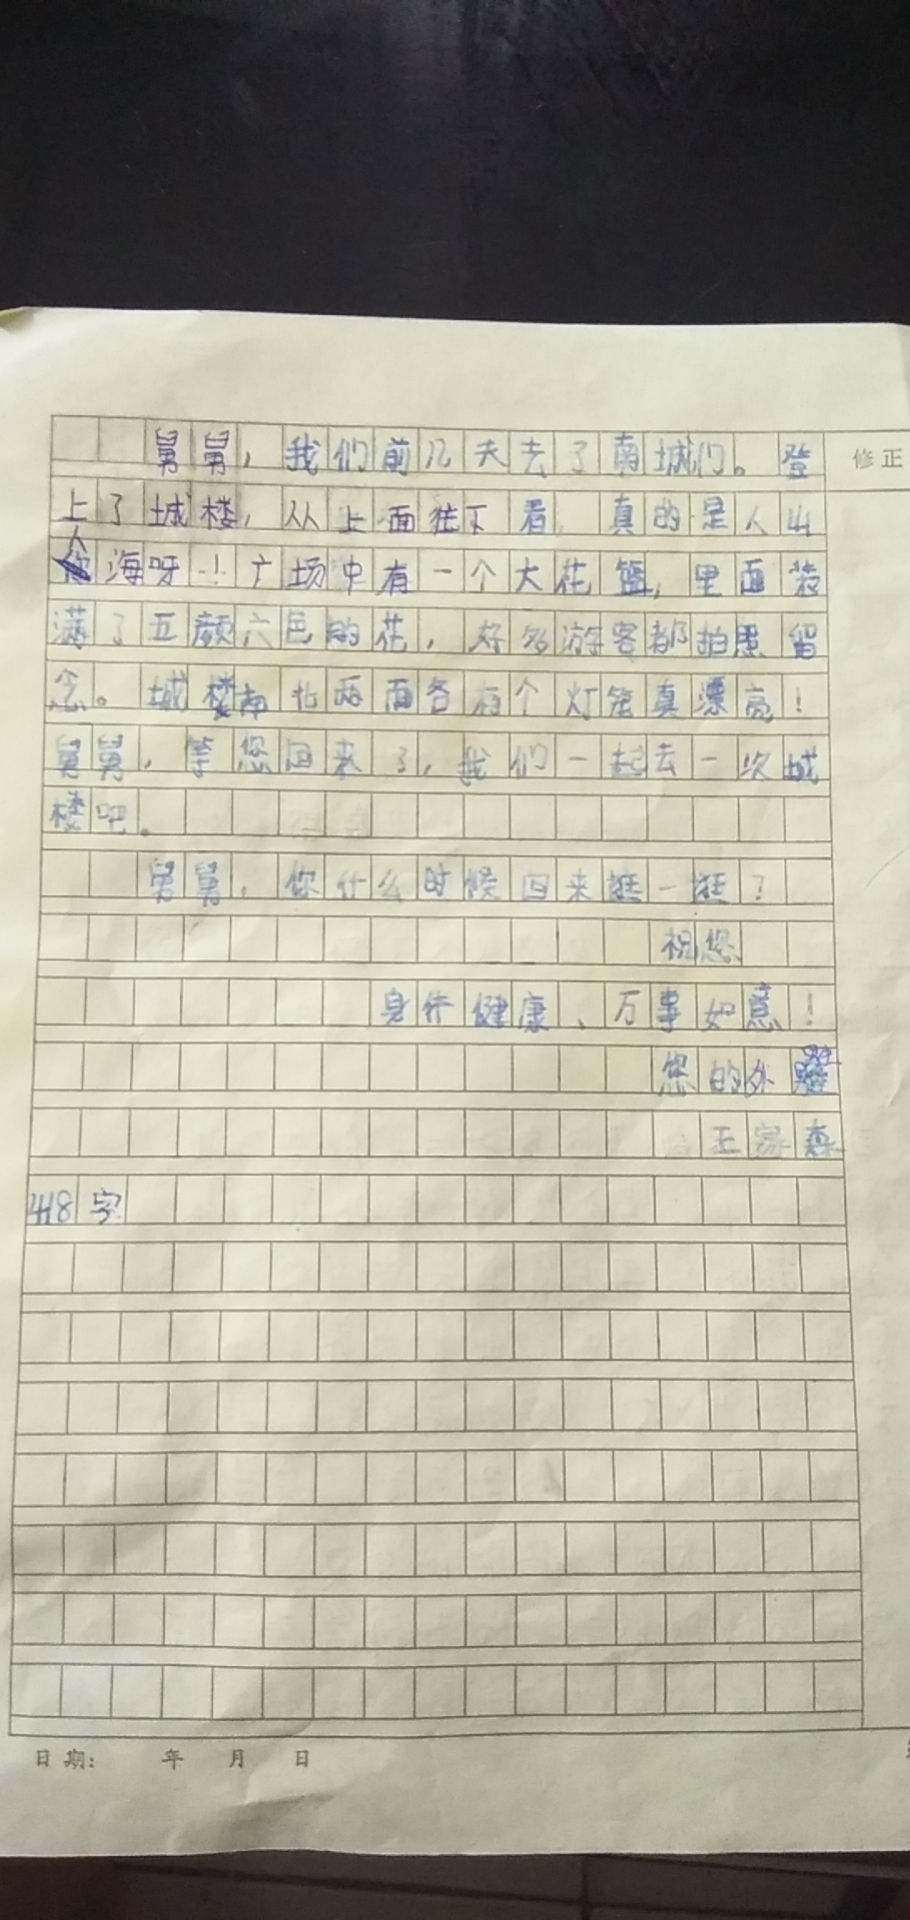 舅舅，我们前几天去了南城门。登
修正
上了城楼，从上面往下看，真的是人山
人海呀！广场中有一个大花篮，里面装
满了五颜六色的花，好多游客都拍照留
念。城楼南北两面各有个灯笼真漂亮！
舅舅，等您回来了，我们一起去一次城
楼吧。
舅舅，你什么时候回来逛一逛？
祝您
身体健康、万事如意！
您的外甥
王家森
418字
日期： 年 月 日